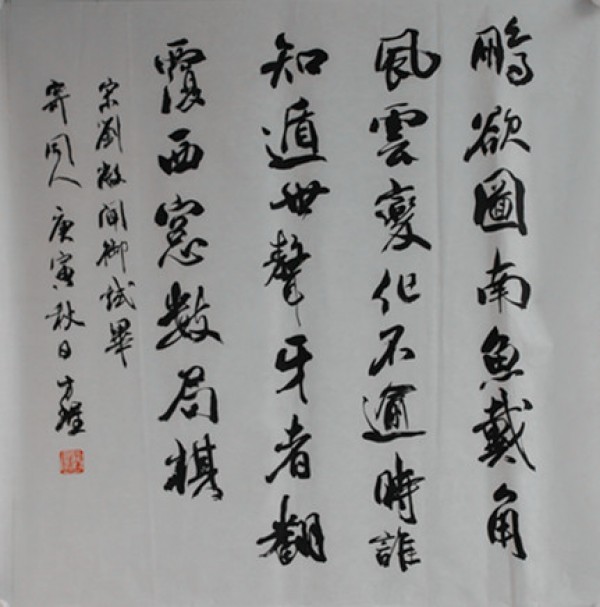 鵬欲圖南魚戴角
風雲變化不逾時誰
知遁世聱牙者翻
覆西窓数局棋
宋劉敞聞御試畢
寄同人 庚寅秋日